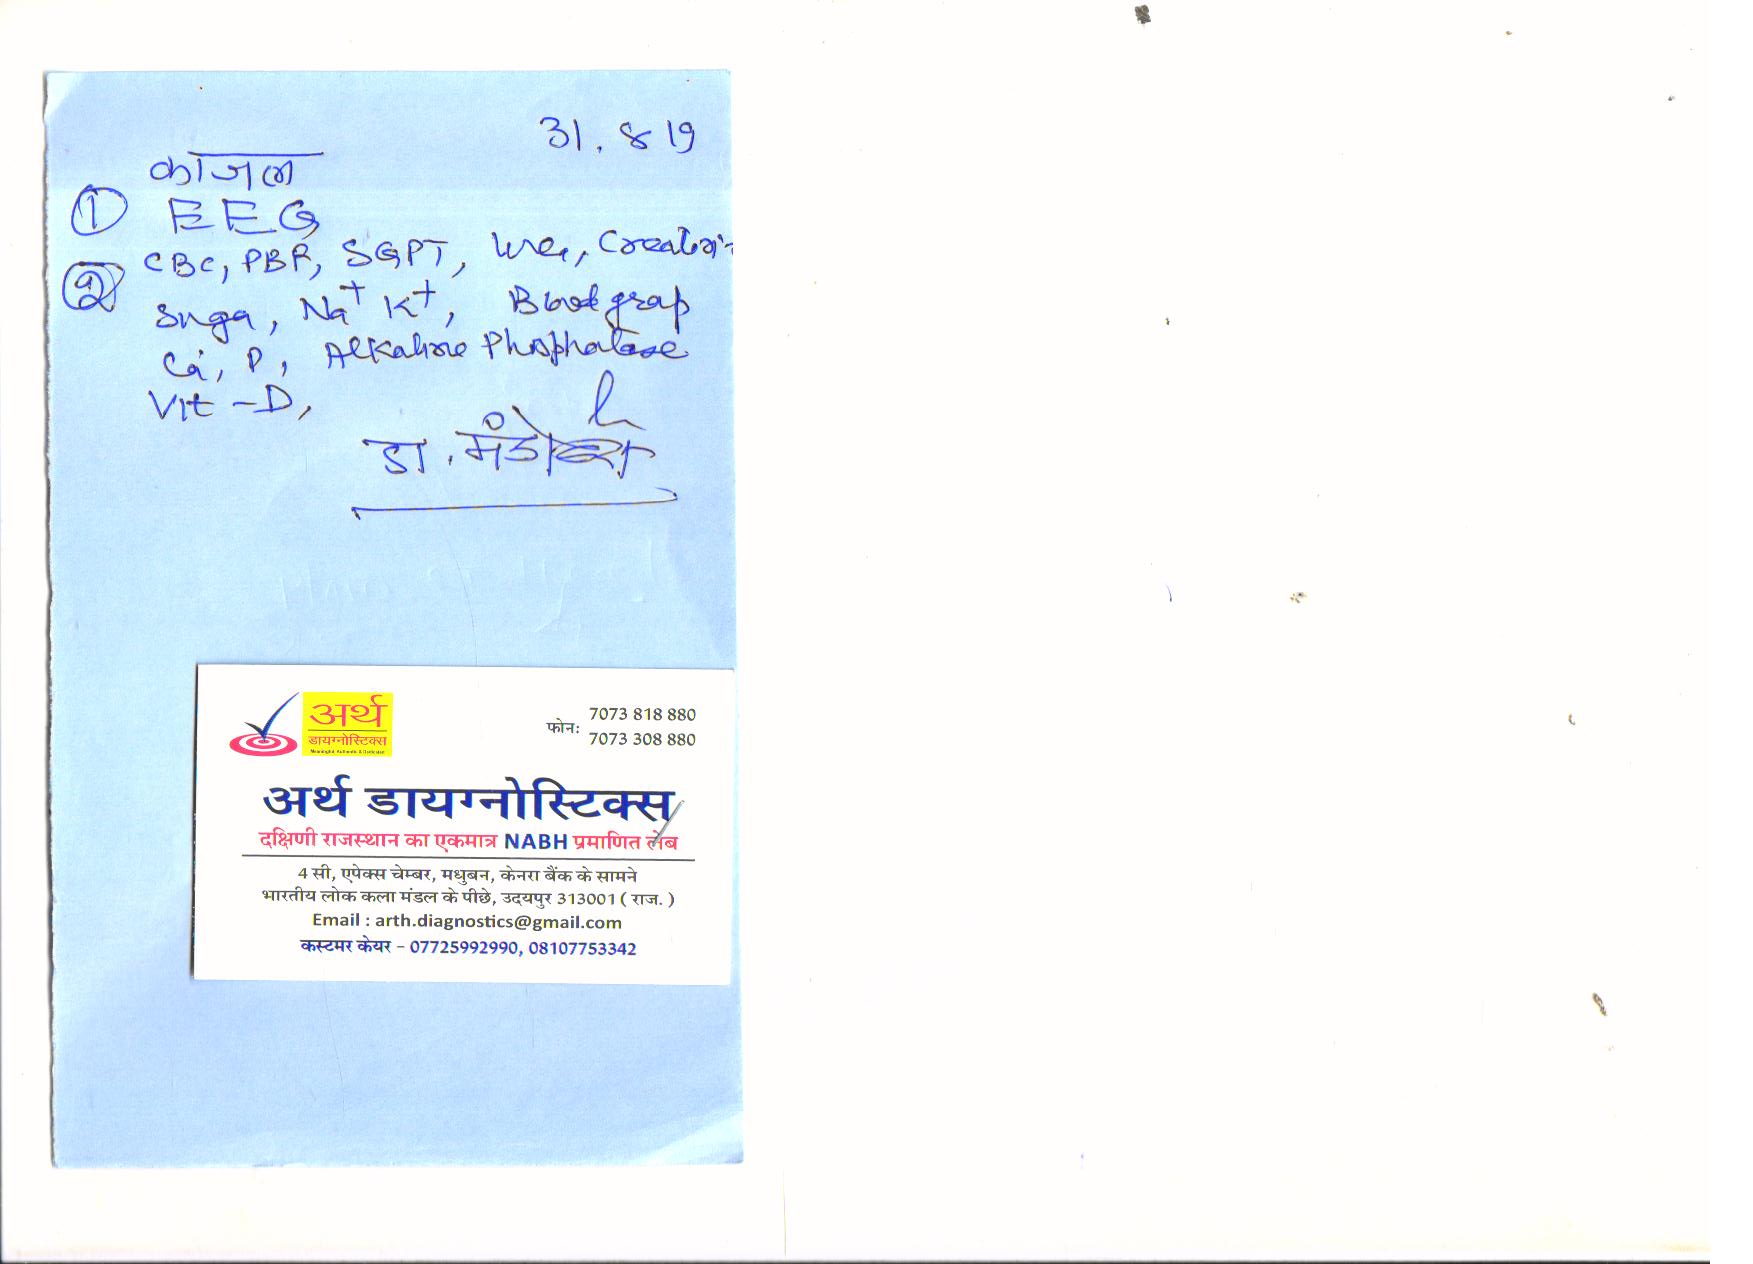 31.8 19
काजल
① EEG
② CBC, PBF, SGPT, Urea, Creatini
Suga, Na⁺ K⁺, Blood grap
Ca, P, Alkaline Phosphatase
Vit-D,
डा.
अर्थ
डायग्नोस्टिक्स
Meaningful Authentic & Dedicated
फोन: 7073 818 880
7073 308 880
अर्थ डायग्नोस्टिक्स
दक्षिणी राजस्थान का एकमात्र NABH प्रमाणित लेब
4 सी, एपेक्स चेम्बर, मधुबन, केनरा बैंक के सामने
भारतीय लोक कला मंडल के पीछे, उदयपुर 313001 ( राज. )
Email : arth.diagnostics@gmail.com
कस्टमर केयर – 07725992990, 08107753342